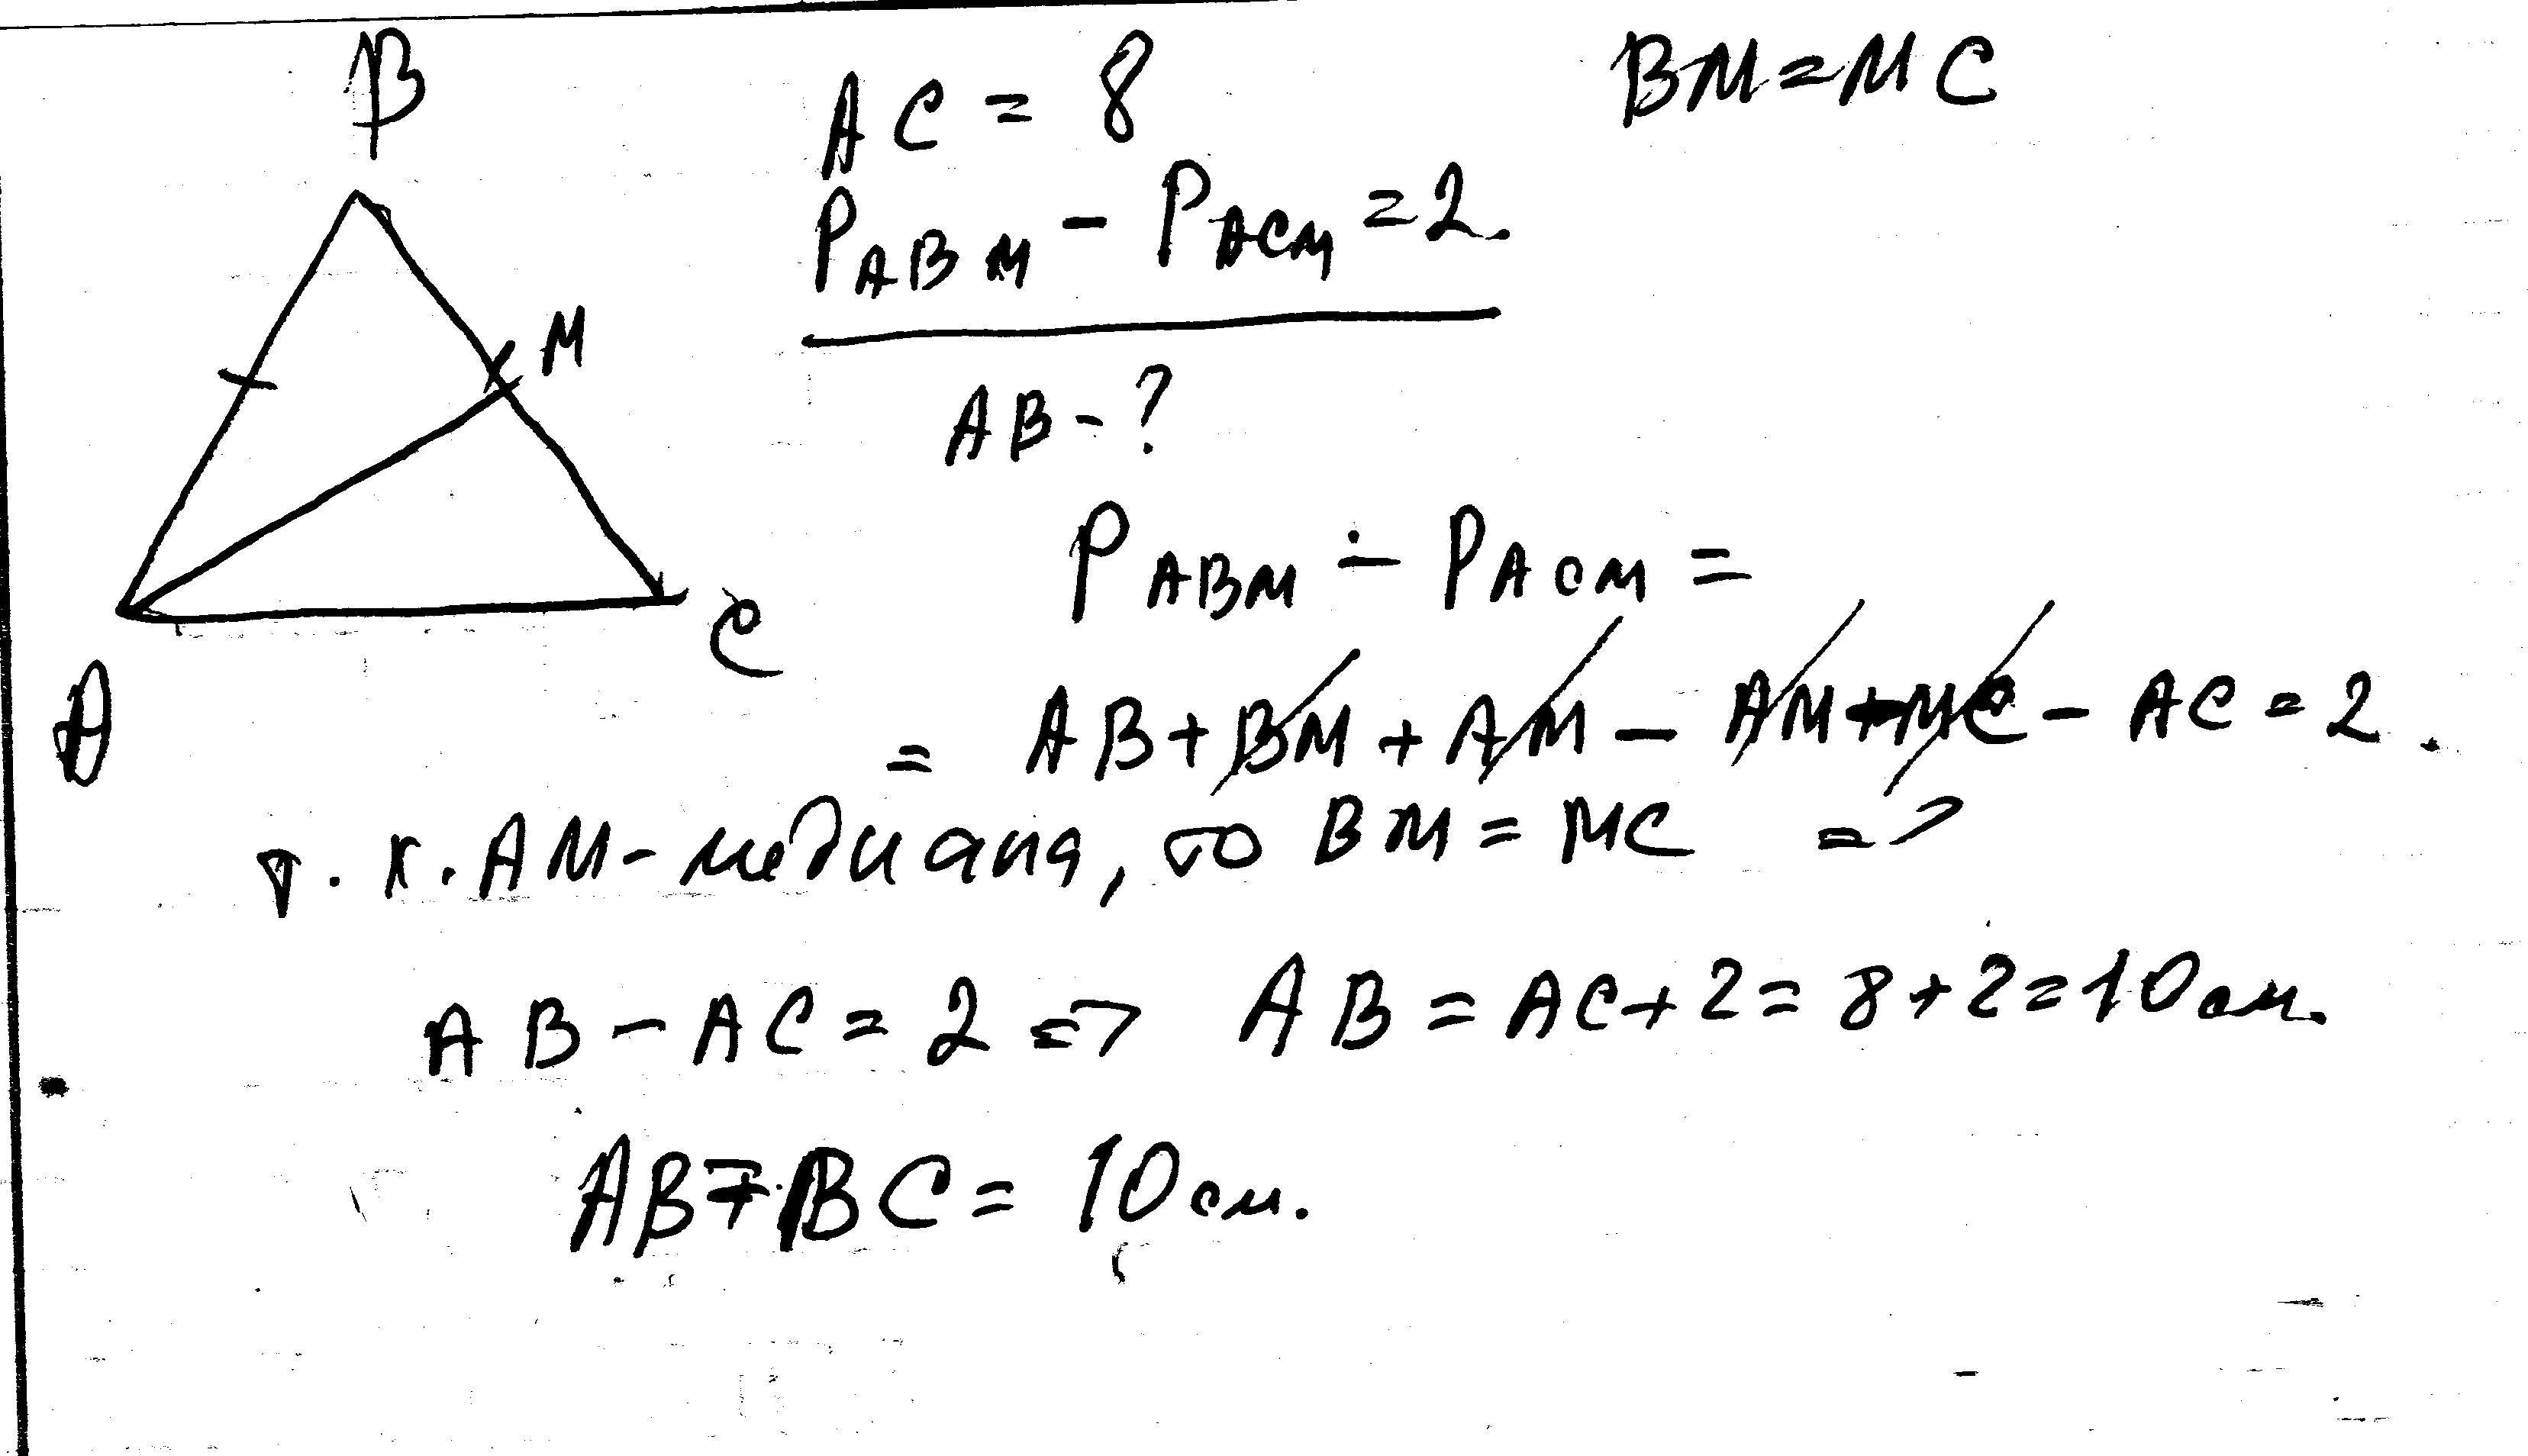 B
AC = 8
BM = MC
P ABM - P ACM = 2.
M
AB - ?
P ABM - P ACM =
C
A
= AB + BM + AM - AM + MC - AC = 2.
т.к. AM - медиана, то BM = MC =>
AB - AC = 2 => AB = AC + 2 = 8 + 2 = 10 см.
AB = BC = 10 см.